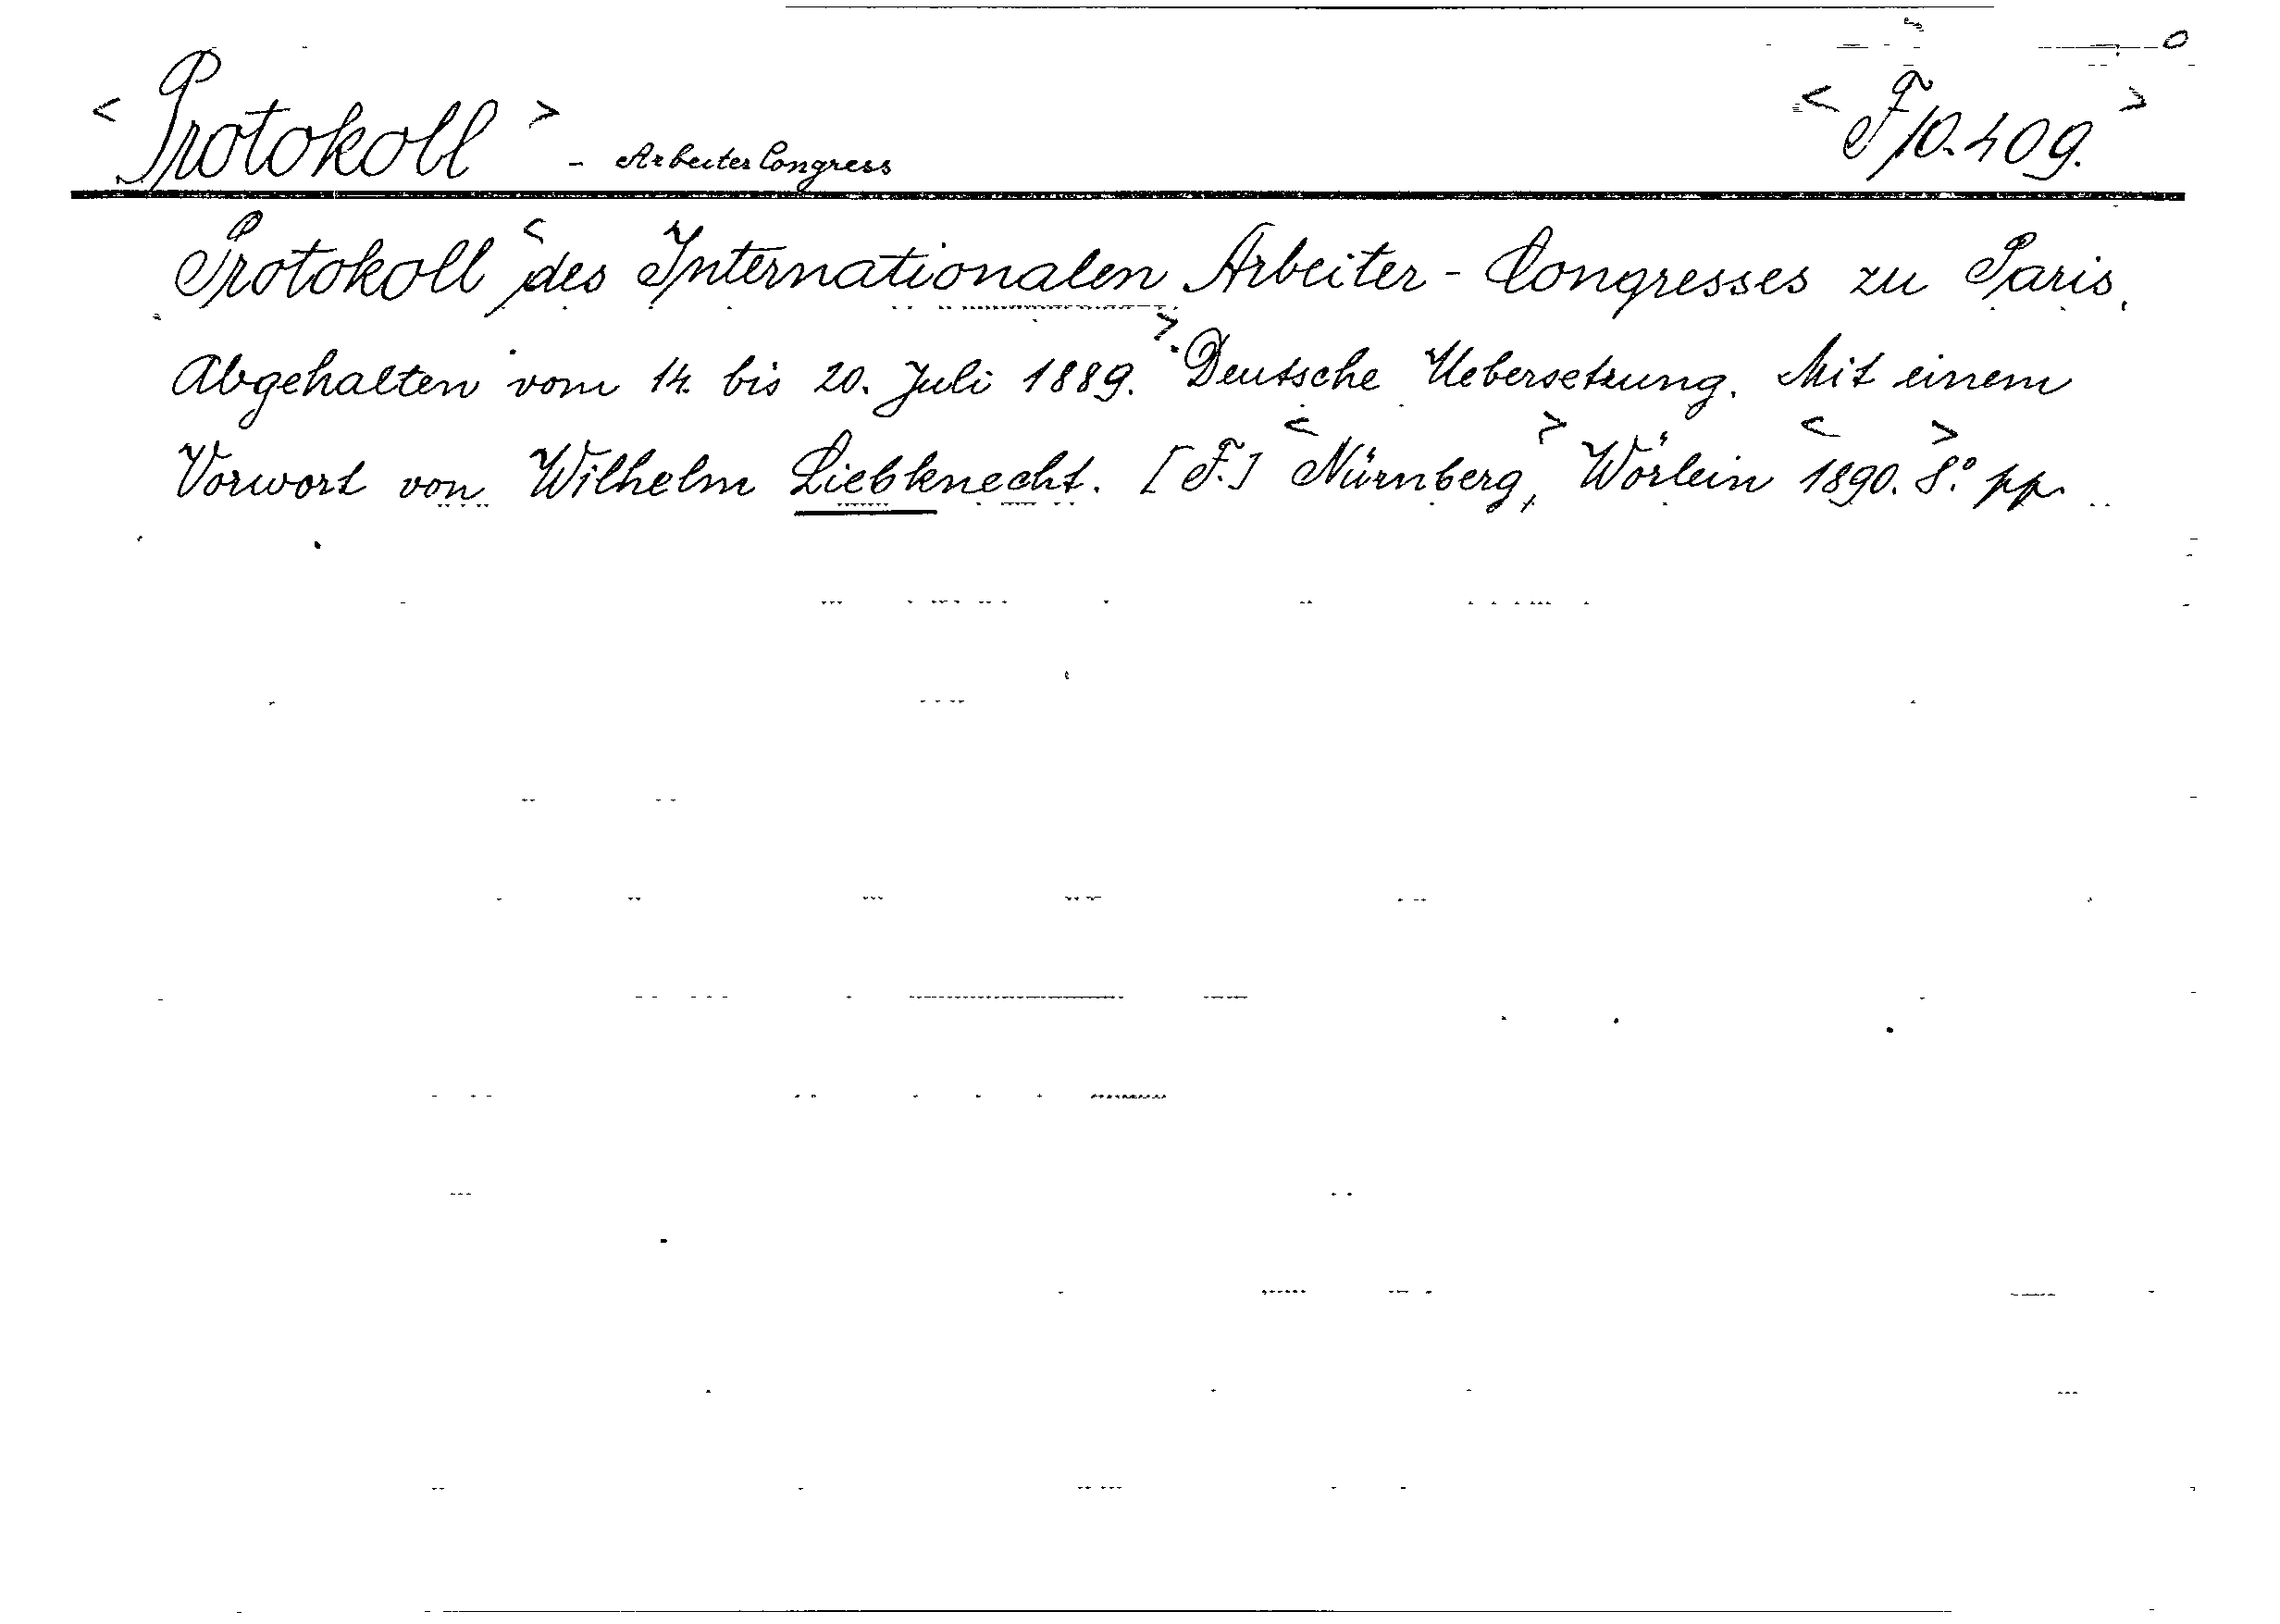 < Protokoll > - Arbeiter Congress < F 10.409. >
Protokoll < des Internationalen Arbeiter - Congresses zu Paris.
Abgehalten vom 14. bis 20. Juli 1889. > Deutsche Uebersetzung. Mit einem
Vorwort von Wilhelm Liebknecht. [F.] < Nürnberg, > Wörlein < 1890. > 8.° pp.